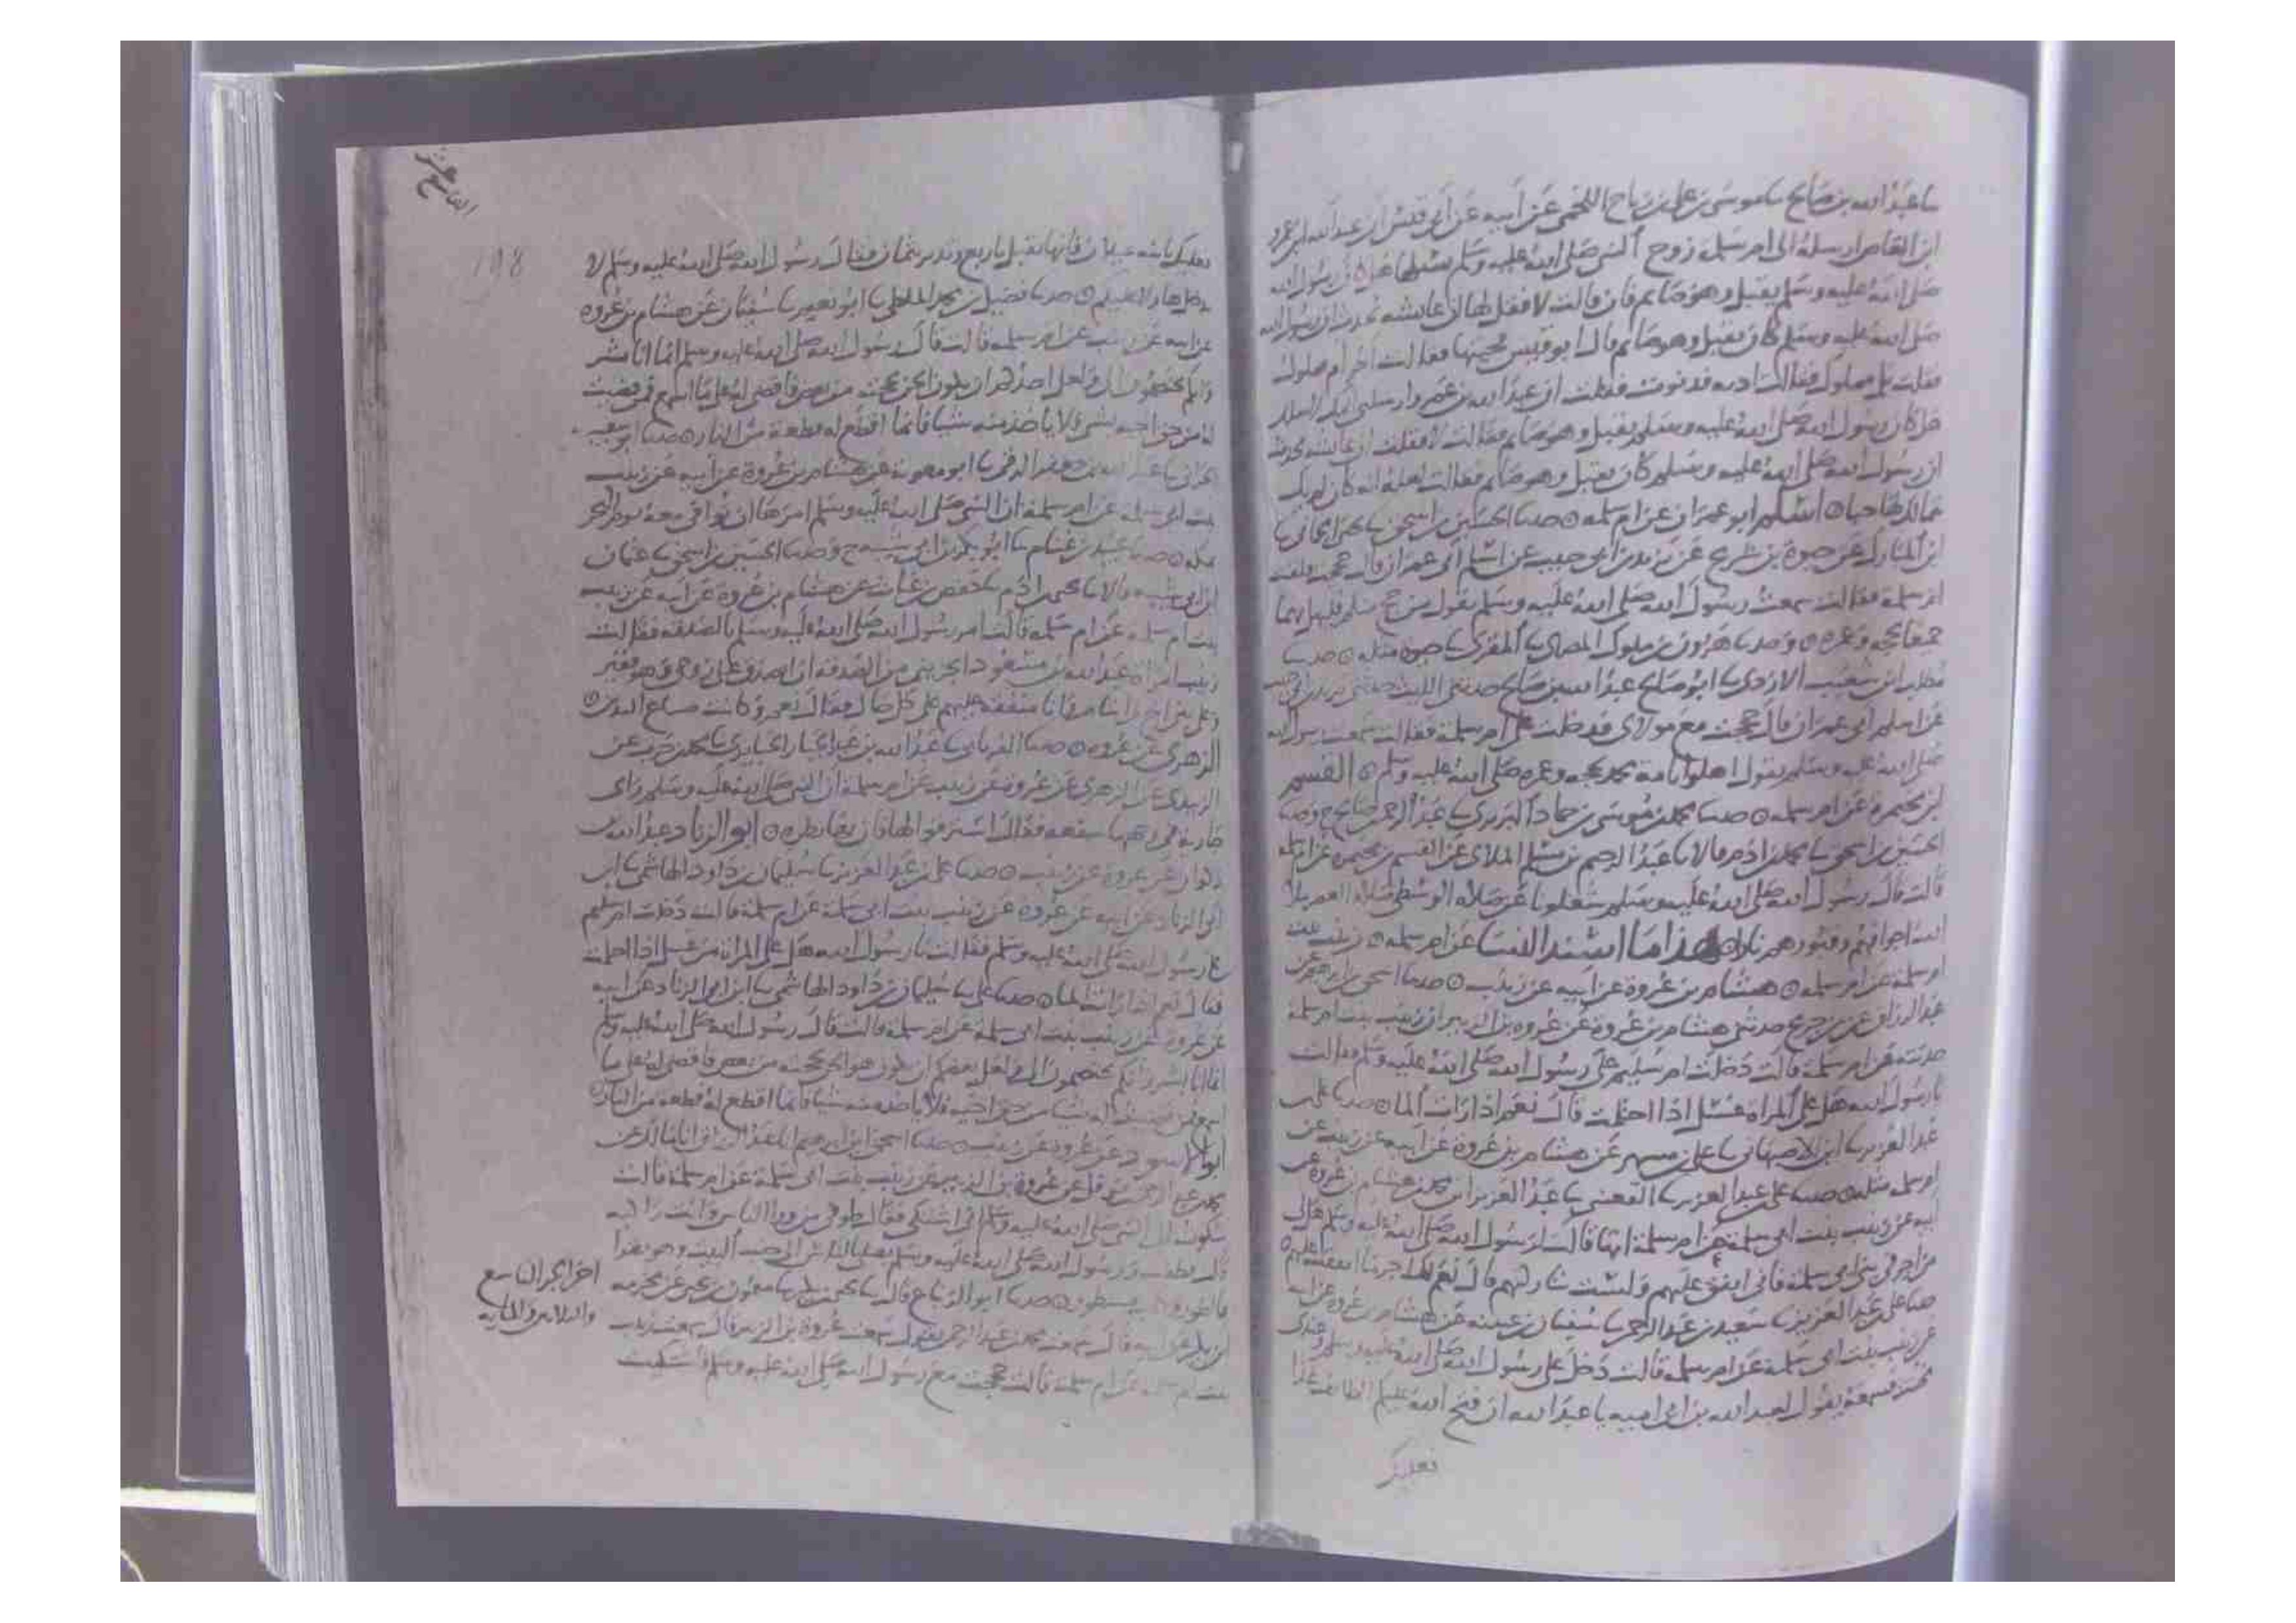 ثنا عبد الله بن صالح ثنا موسى بن علي بن رباح اللخمي عن ابيه عن ابي قيس ان عبد الله بن عمرو
ابن العاص ارسله الى ام سلمة زوج النبي صلى الله عليه وسلم يسألها هل كان رسول الله
صلى الله عليه وسلم يقبل وهو صايم فان قالت لا فقل لها ان عايشه تحدث ان رسول الله
صلى الله عليه وسلم كان يقبل وهو صايم قال ابو قيس فجيتها فقالت احر ام مملوك
فقلت بل مملوك فقالت ادنه فدنوت فقلت ان عبد الله بن عمرو ارسلني اليك
هل كان رسول الله صلى الله عليه وسلم يقبل وهو صايم فقالت لا فقلت ان عايشه تحدث
ان رسول الله صلى الله عليه وسلم كان يقبل وهو صايم فقالت لعله انه كان لم يك
يتمالك لها حبا اسلم ابو عمران عن ام سلمه حدثنا الحسين بن اسحق ثنا يحيى الحماني ثنا
ابن المبارك عن حيوة بن شريح عن يزيد بن ابي حبيب عن اسلم ابي عمران قال حججت فلقيت
ام سلمة فقالت سمعت رسول الله صلى الله عليه وسلم يقول من حج منكم فليهل بهما
جميعا بحجه وعمره وحدثنا هرون بن ملول المصري ثنا المقري ثنا حيوة مثله حدثنا
مطلب بن شعيب الازدي ثنا ابو صالح عبد الله بن صالح حدثني الليث حدثني يزيد بن ابي حبيب
عن اسلم ابي عمران قال حججت مع موالي فدخلت على ام سلمة فقالت سمعت رسول الله
صلى الله عليه وسلم يقول اهلوا يا امة محمد بحجه وعمره صلى الله عليه وسلم القسم
ابن مخيمرة عن ام سلمه حدثنا محمد بن موسى بن حماد البربري ثنا عبد الرحمن بن صالح ح وحدثنا
الحسين بن اسحق ثنا محمد بن ادم قالا ثنا عبد الرحيم بن سليم الملاي عن القسم بن مخيمره عن ام سلمه
قالت قال رسول الله صلى الله عليه وسلم شغلونا عن صلاة الوسطى صلاة العصر ملا
الله اجوافهم وقبورهم نارا هذا ما اسند النسا عن ام سلمه زينب بنت
ام سلمة عن ام سلمه هشام بن عروة عن ابيه عن زينب حدثنا اسحق بن ابرهيم عن
عبد الرزاق عن ابن جريج حدثني هشام بن عروة عن عروة بن الزبير ان زينب بنت ام سلمة
حدثته عن ام سلمة قالت دخلت ام سليم على رسول الله صلى الله عليه وسلم فقالت
يا رسول الله هل على المراة غسل اذا احتلمت قال نعم اذا رات الما حدثنا علي بن
عبد العزيز ثنا ابن الاصبهاني ثنا علي بن مسهر عن هشام بن عروة عن ابيه عن زينب عن
ام سلمه مثله حدثنا علي بن عبد العزيز ثنا القعنبي ثنا عبد العزيز بن محمد عن هشام بن عروة عن
ابيه عن زينب بنت ابي سلمة عن ام سلمة انها قالت لرسول الله صلى الله عليه وسلم هل لي
من اجر في بني ابي سلمة فاني انفق عليهم ولست بتاركتهم قال نعم لك اجر ما انفقت عليهم
حدثنا علي بن عبد العزيز ثنا سعيد بن عبد الرحمن ثنا سفيان بن عيينه عن هشام بن عروة عن ابيه
عن زينب بنت ابي سلمة عن ام سلمه قالت دخل علي رسول الله صلى الله عليه وسلم وعندي
مخنث فسمعه يقول لعبد الله بن ابي اميه يا عبد الله ان فتح الله عليكم الطايف غدا
فعليك
198
فعليك بابنه غيلان فانها تقبل باربع وتدبر بثمان فقال رسول الله صلى الله عليه وسلم لا
يدخل هاولا عليكم حدثنا فضيل بن محمد الملطي ثنا ابو نعيم ثنا سفيان عن هشام بن عروه
عن ابيه عن زينب عن ام سلمه قالت قال رسول الله صلى الله عليه وسلم انما انا بشر
وانكم تختصمون الي ولعل احدكم ان يكون الحن بحجته من بعض فاقضي له على ما اسمع فمن قضيت
له من حق اخيه بشي فلا ياخذ منه شيا فانما اقطع له قطعة من النار حدثنا ابو شعيب
الحراني ثنا عبد الله بن جعفر الرقي ثنا ابو معوية عن هشام بن عروة عن ابيه عن زينب
بنت ابي سلمه عن ام سلمة ان النبي صلى الله عليه وسلم امرها ان توافي معه يوم النحر
بمكه حدثنا عبيد بن غنام ثنا ابو بكر بن ابي شيبه ح وحدثنا الحسين بن اسحق ثنا عثمان
ابن ابي شيبه قالا ثنا يحيى بن ادم ثنا حفص بن غياث عن هشام بن عروة عن ابيه عن زينب
بنت ام سلمه عن ام سلمه قالت امر رسول الله صلى الله عليه وسلم بالصدقه فقالت
زينب امراة عبد الله بن مسعود ايجزيني من الصدقه ان اصدق على زوجي وهو فقير
وعلى بني اخ لي ايتام وانا منفقه عليهم على كل حال فقال نعم وكانت صناع اليدين
الزهري عن عروه حدثنا الفريابي ثنا عبد الله بن عبد الجبار الخبايري ثنا محمد بن حرب عن
الزبيدي عن الزهري عن عروة عن زينب عن ام سلمة ان النبي صلى الله عليه وسلم راى
جارية في بيتها سفعه فقال استرقوا لها فان بها نظره ابو الزناد عبد الله بن
ذكوان عن عروة عن زينب حدثنا علي بن عبد العزيز ثنا سليمان بن داود الهاشمي ثنا ابن
ابي الزناد عن ابيه عن عروة عن زينب بنت ابي سلمة عن ام سلمة قالت دخلت ام سليم
على رسول الله صلى الله عليه وسلم فقالت يا رسول الله هل على المراة من غسل اذا احتلمت
فقال نعم اذا رات الما حدثنا علي ثنا سليمان بن داود الهاشمي ثنا ابن ابي الزناد عن ابيه
عن عروة عن زينب بنت ابي سلمة عن ام سلمة قالت قال رسول الله صلى الله عليه وسلم
انما انا بشر وانكم تختصمون الي ولعل بعضكم ان يكون هو الحن بحجته من بعض فاقضي له على ما
اسمع فمن قضيت له شيا من حق اخيه فلا ياخذ منه شيا فانما اقطع له قطعة من النار
ابو الاسود عن عروة عن زينب حدثنا اسحق بن ابرهيم انا عبد الرزاق انا مالك عن
محمد بن عبد الرحمن بن نوفل عن عروة بن الزبير عن زينب بنت ابي سلمة عن ام سلمة قالت
شكوت الى النبي صلى الله عليه وسلم اني اشتكي فقال طوفي من ورا الناس وانت راكبه
قالت فطفت ورسول الله صلى الله عليه وسلم يصلي بالناس الى جنب البيت وهو يقرا
والطور وكتاب مسطور حدثنا ابو الزنباع قال ثنا يحيى بن بكير ثنا ميمون بن يحيى عن مخرمه
ابن بكير عن ابيه قال سمعت محمد بن عبد الرحمن يقول سمعت عروة بن الزبير قال سمعت زينب
بنت ام سلمه عن ام سلمة قالت حججت مع رسول الله صلى الله عليه وسلم فاشتكيت
اخر الجزء السابع
والثلاثين والمايه